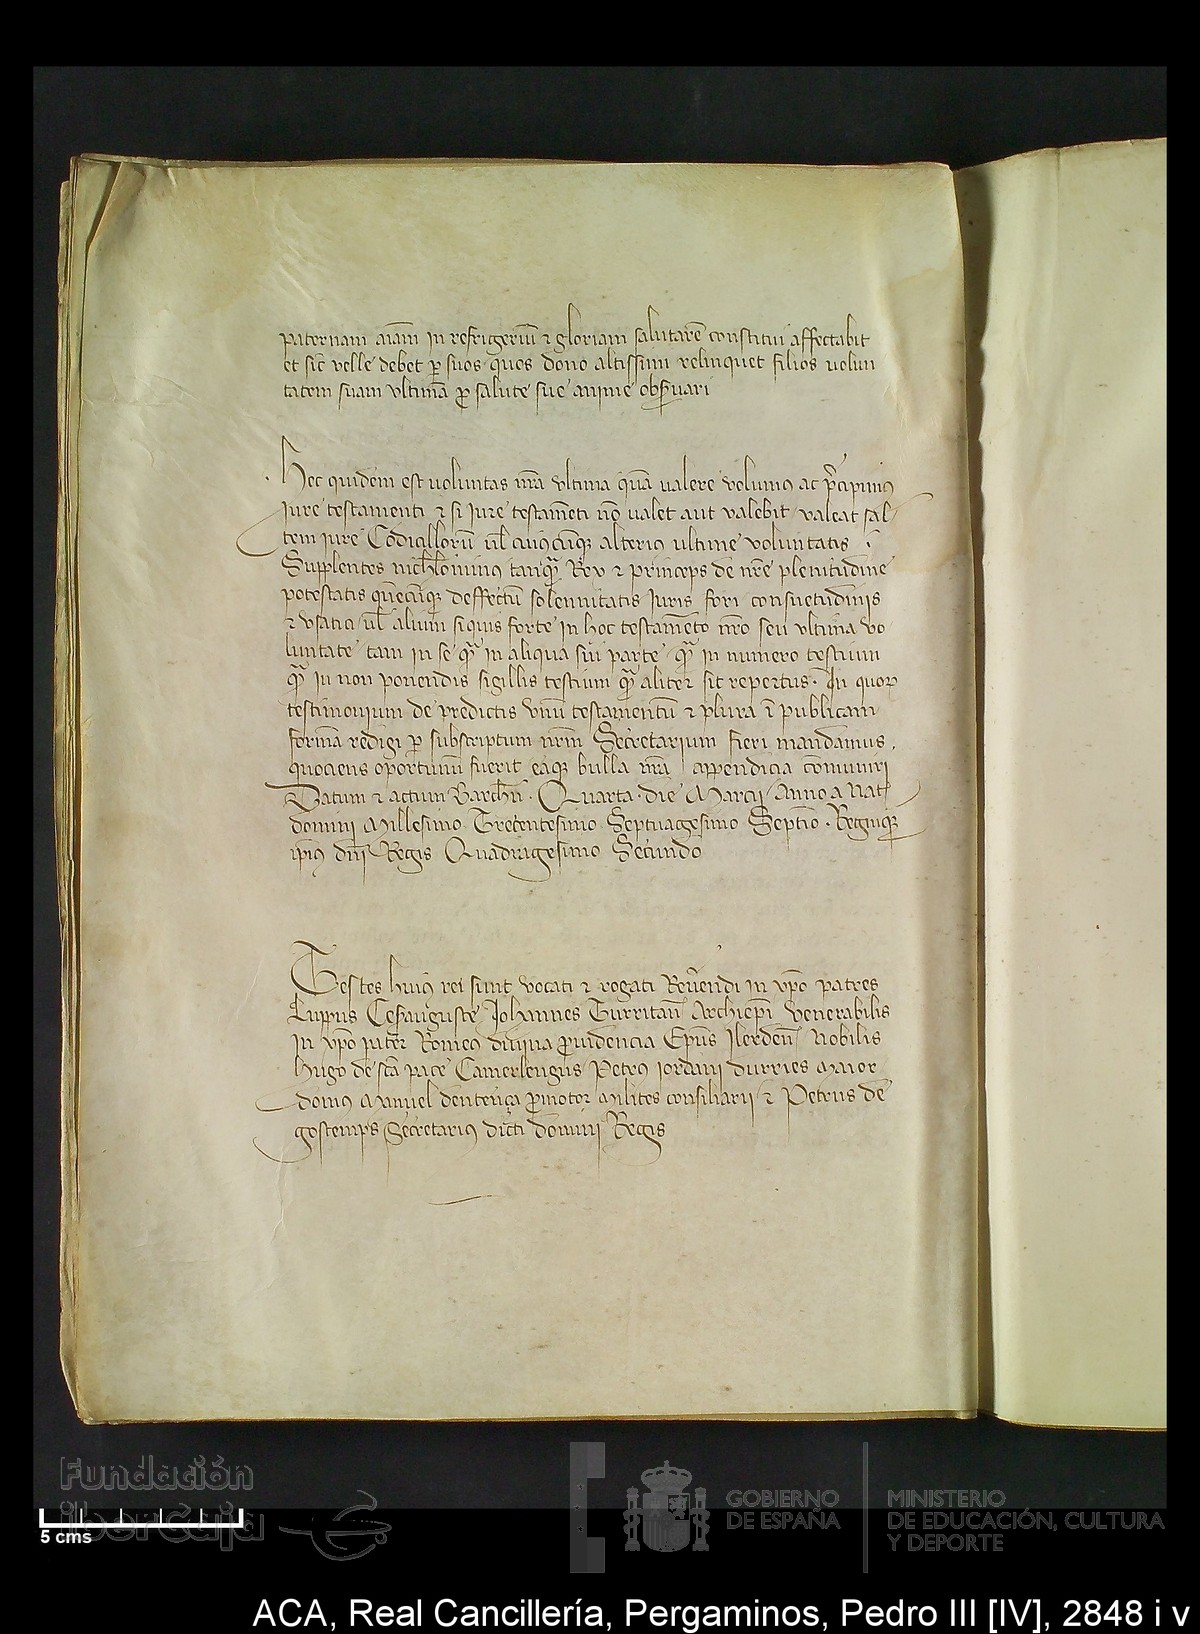 paternam aīam in refrigeriū ⁊ gloriam salutarē constitui affectabit
et sic velle debet ꝑ suos quos dono altissimi relinquet filios volun
tatem suam vltimā ꝓ salute sue anime obseruari
Hec quidem est voluntas nr̄a vltima quā valere volumus ac p̄cipimus
Iure testamenti ⁊ si Iure testamēti nō valet aut valebit valeat sal
tem iure Codicillorū vl̄ cuiuscūqꝫ alterius ultime voluntatis
Supplentes nichilominus tanqꝫ Rex ⁊ princeps de nr̄e plenitudine
potestatis quēcūqꝫ deffectū solennitatis Iuris fori consuetudinis
⁊ vsatici vl̄ alium siquis forte in hoc testamēto nr̄o seu vltima vo
luntate tam in se qꝫ in aliqua sui parte qꝫ in numero testium
qꝫ in non ponendis sigillis testium qꝫ aliter sit repertus. In quoꝝ
testimonium de predictis vnū testamentū ⁊ plura ī publicam
formā redigi ꝑ subscriptum nr̄m Secretarium fieri mandamus,
quociens oportunū fuerit eāqꝫ bulla nr̄a appendicia cōmuniri
Datum ⁊ actum Barchn̄. Quarta die Marcij Anno a Nat
domini Millesimo Trecentesimo Septuagesimo Septīo. Regniqꝫ
ipīus dn̄i Regis Quadragesimo Secundo
Testes huius rei sunt vocati ⁊ rogati Reu̅endi in xp̄o patres
Luppus Cesarauguste Johannes Turritan̄ Archiepī venerabilis
in xp̄o pater Romeus diuina ꝓuidencia Ep̄us Ilerden̄ Nobilis
Hugo de sc̄a pace Camerlengus Petrus iordani durries Maior
domus Manuel dentença ꝓmotor Milites consiliarii ⁊ Petrus de
gostemps Secretarius dicti domini Regis
Fundación
iberCaja
5 cms
GOBIERNO
DE ESPAÑA
MINISTERIO
DE EDUCACIÓN, CULTURA
Y DEPORTE
ACA, Real Cancillería, Pergaminos, Pedro III [IV], 2848 i v